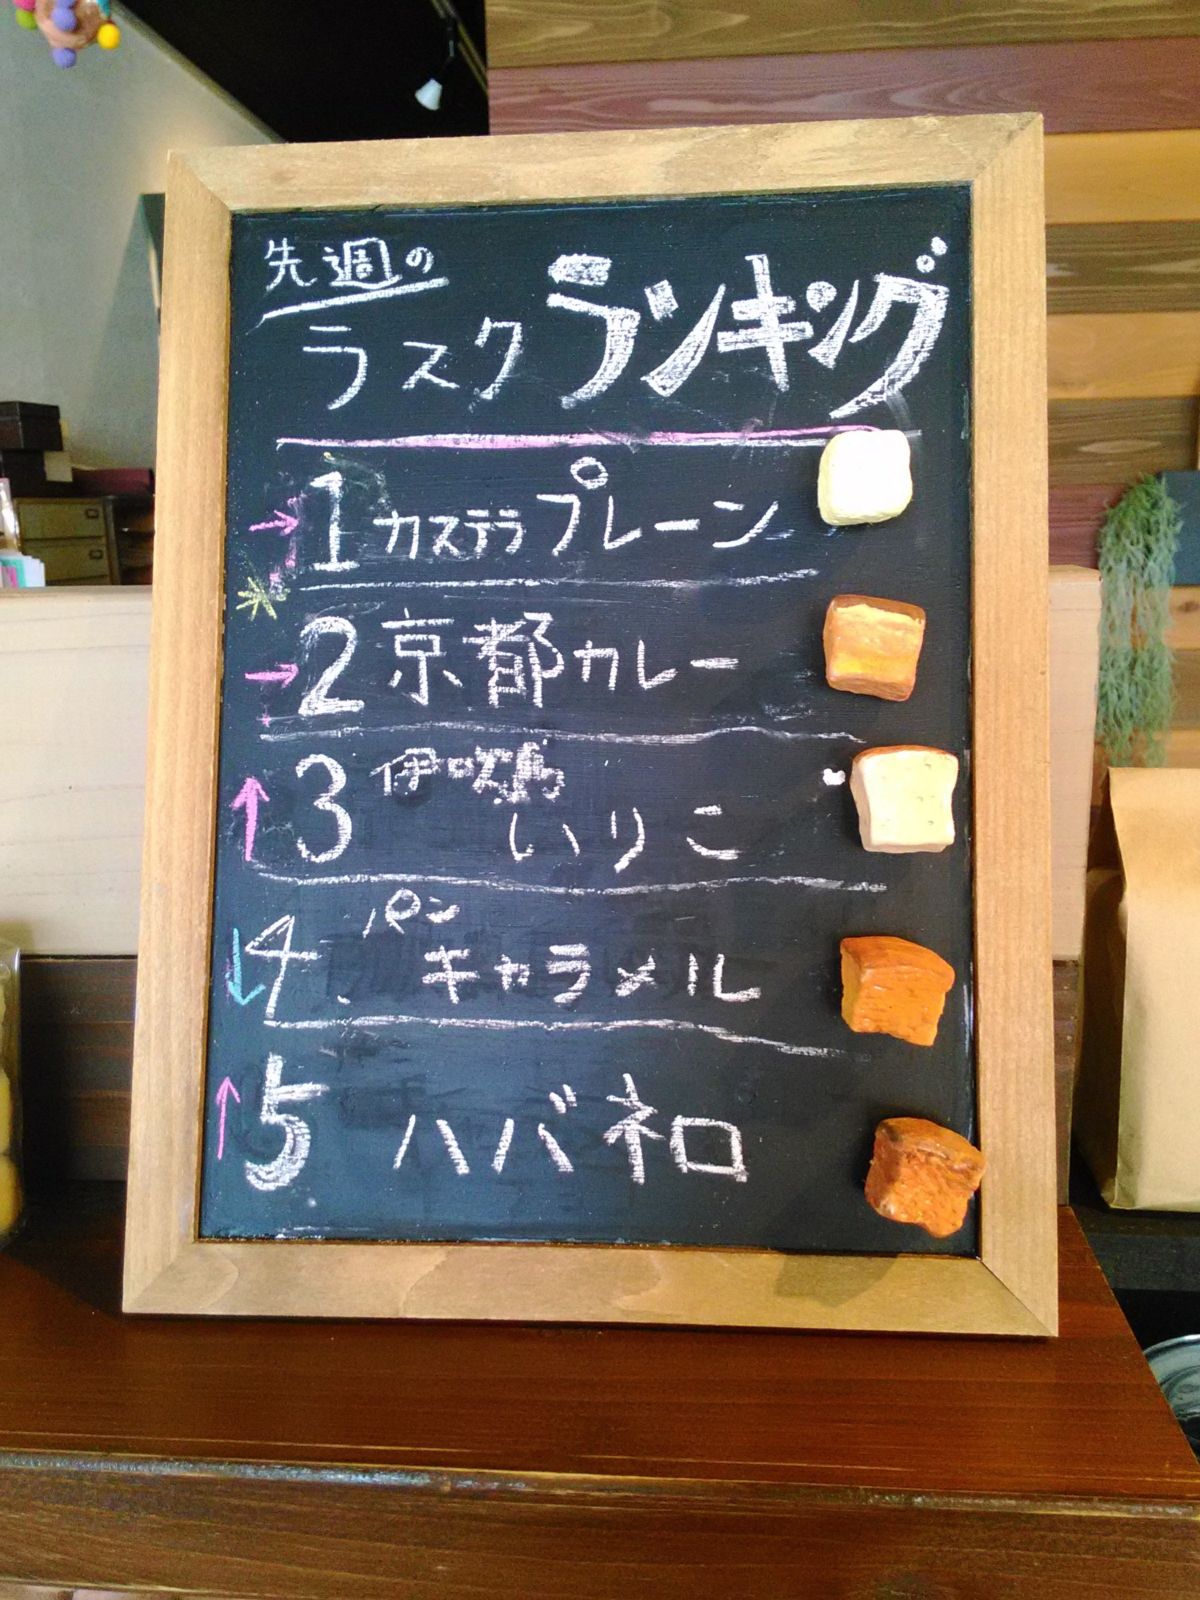 先週の
ラスクランキング
→1 カステラプレーン
→2 京都カレー
↑3 伊吹島
いりこ
↓4 パン
キャラメル
↑5 ハバネロ